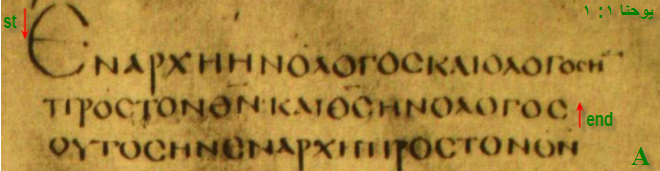 يوحنا ١: ١
st
ΕΝΑΡΧΗΗΝΟΛΟΓΟϹΚΑΙΟΛΟΓΟϹΗ̅
ΠΡΟϹΤΟΝΘ̅Ν̅·ΚΑΙΘ̅Ϲ̅ΗΝΟΛΟΓΟϹ
end
ΟΥΤΟϹΗΝΕΝΑΡΧΗΠΡΟϹΤΟΝΘ̅Ν̅
A